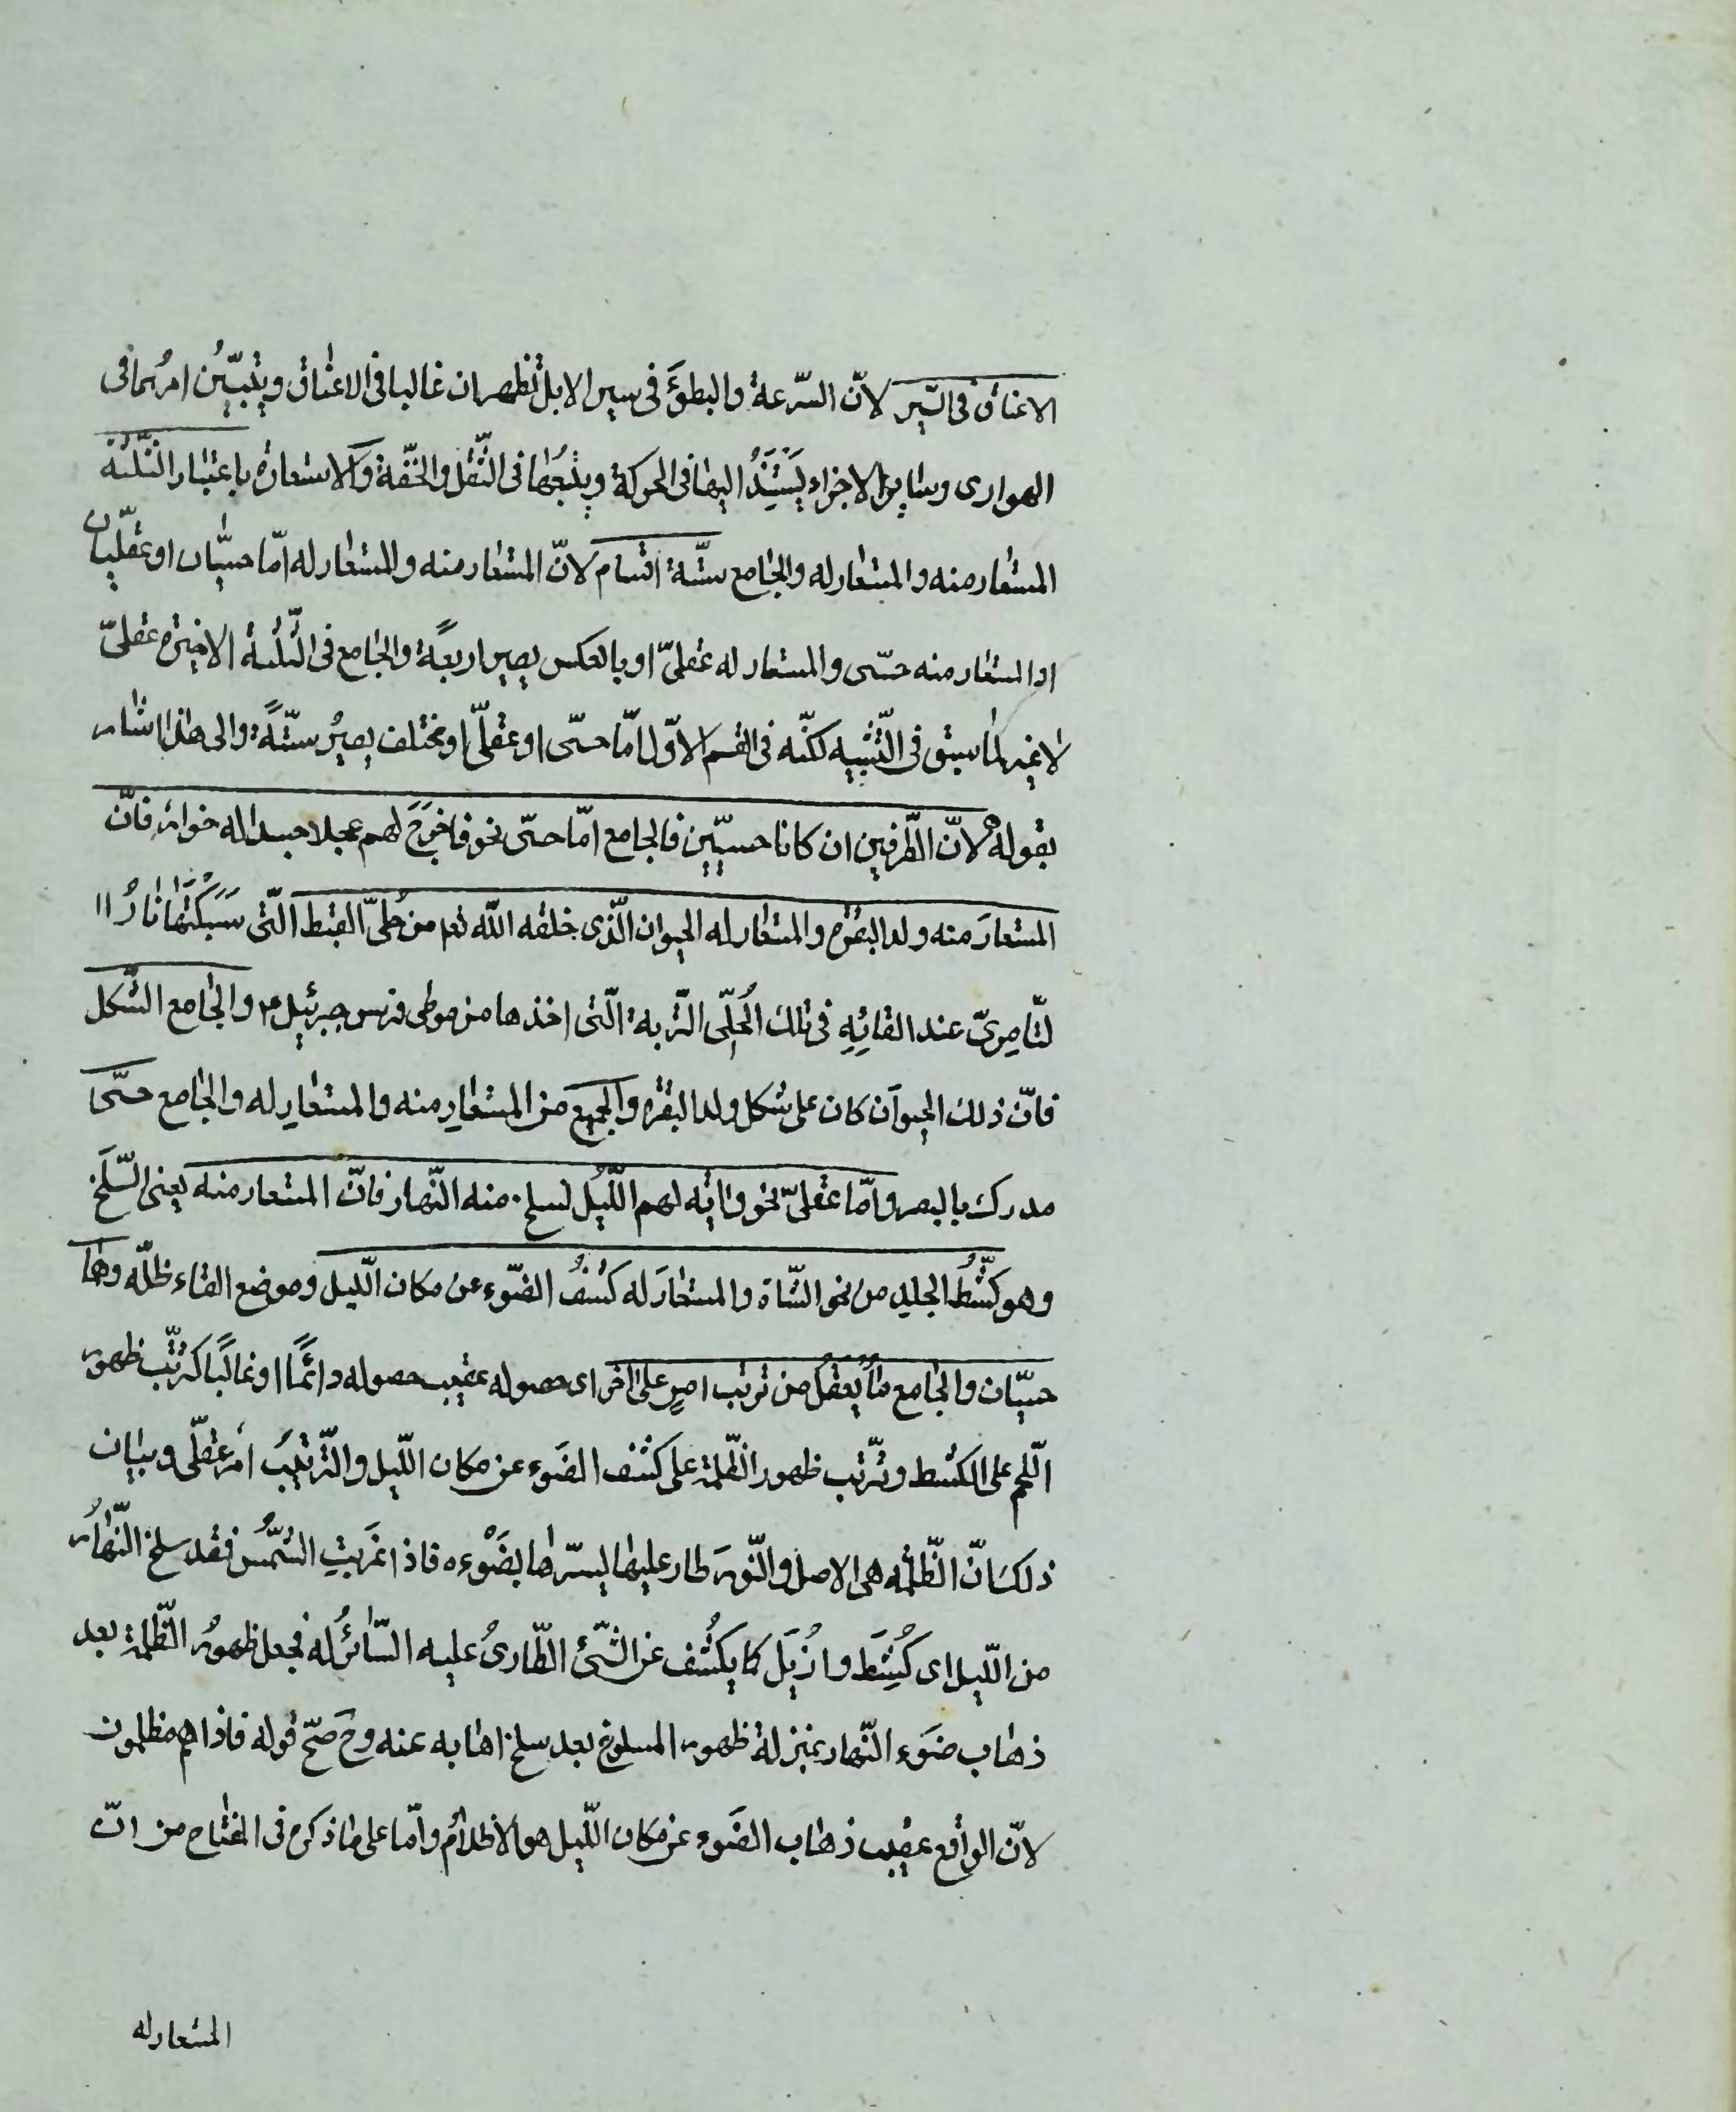 الاعناق فى السّير لانّ السّرعة والبطؤَ فى سير الابل تظهران غالبا فى الاعناق ويتبيّنُ امرُهما فى
الهوادى وساير الاجزاء يَسْتَنِدُ اليها فى الحركة ويتبعُها فى الثّقل والخفّة والاستعارة باعتبار الثّلثة
المستعار منه والمستعار له والجامع ستّة اقسام لانّ المستعار منه والمستعار له امّا حسيّان او عقليّان
او المستعار منه حسّى والمستعار له عقلىّ او بالعكس يصير اربعةً والجامع فى الثّلثة الاخيرة عقلىّ
لا غير لما سبق فى التّشبيه لكنّه فى القسم الاوّل امّا حسّى او عقلّى او مختلف يصيرُ ستّةً والى هذا اشار
بقوله لانّ الطّرفين ان كانا حسيّين فالجامع امّا حسّى نحو فاخرَجَ لهم عجلا جسدا له خوار فانّ
المستعارَ منه ولد البقرة والمستعار له الحيوان الّذى خلقه اللّه تعم من حُلىّ القبط الّتى سَبَكَتْها نارُ ا
لسّامِرىّ عند القائِهِ فى تلك الحُلّى التّربة الّتى اخذها من موطى فرس جبرئيل ع والجامع الشّكل
فانّ ذلك الحيوان كان على شكل ولد البقرة والجميع من المستعارِ منه والمستعارِ له والجامع حسّى
مدرك بالبصر وامّا عقلىّ نحو واٰية لهم اللّيل نسلخ منه النّهار فانّ المستعار منه يعنى السّلخَ
وهو كَشْطُ الجليد من نحو الشّاة والمستعارَ له كشفُ الضّوء عن مكان اللّيل وموضع القاء ظلّه وهما
حسيّان والجامع ما يُعقَلُ من ترتّب امرٍ على اٰخر اى حصوله عقيب حصوله دائمًا او غالبًا كترتّب ظهور
اللّحم على الكشط وترّتب ظهور الظّلمة على كشف الضَوء عن مكان اللّيل والتّرتيبُ امْر عقلّى وبيان
ذلك انّ الظّلمة هى الاصل والنّورَ طار عليها يسترها بضَوْءه فاذا غَربَتِ الشّمُس فقد سلخ النّهارُ
من اللّيل اى كُشِطَ واُزيلَ كما يكْشف عن الشّئ الطّارىُ عليه السّاترُ له فجعل ظهورُ الظّلمة بعد
ذهاب ضَوء النّهار بمنزلة ظهور المسلوخ بعد سلخ اهابه عنه وح صحّ قوله فاذا هم مظلمون
لانّ الواقع عقيب ذهاب الضَوء عن مكان اللّيل هو الاظلامُ وامّا على ما ذكره فى المفتاح من انّ
المستعار له